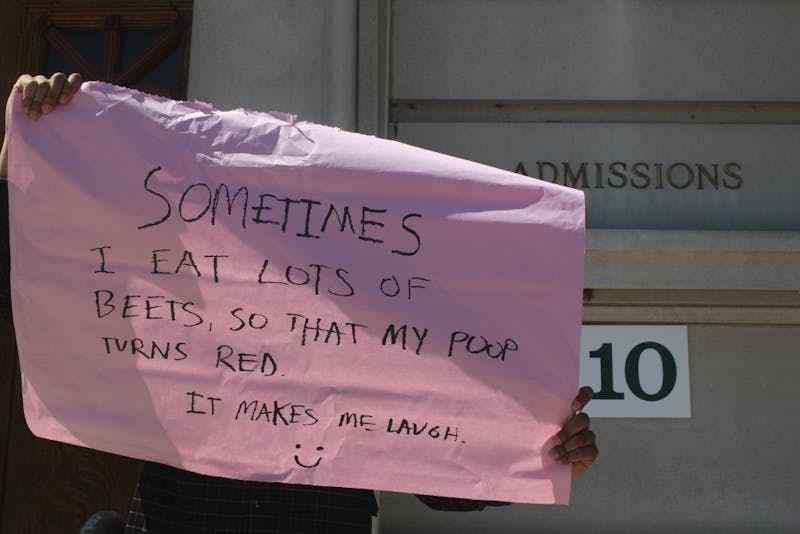 SOMETIMES
I EAT LOTS OF
BEETS, SO THAT MY POOP
TURNS RED.
IT MAKES ME LAUGH.
ADMISSIONS
10